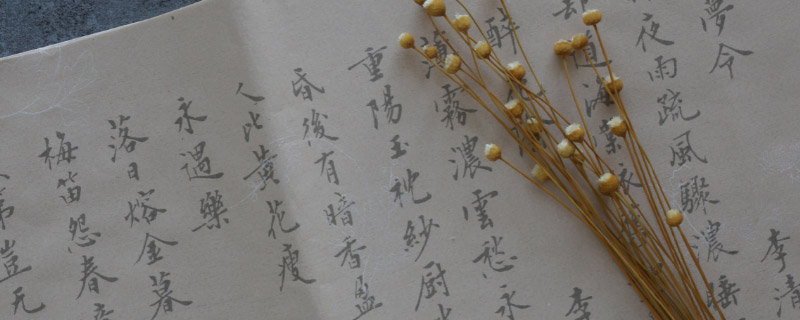 夢令 李清
夜雨疏風驟濃睡
却道海棠依舊
醉花陰 李
薄霧濃雲愁永
重陽玉枕紗厨
昏後有暗香盈
人比黃花瘦
永遇樂
落日熔金暮
梅笛怨春
第豈无